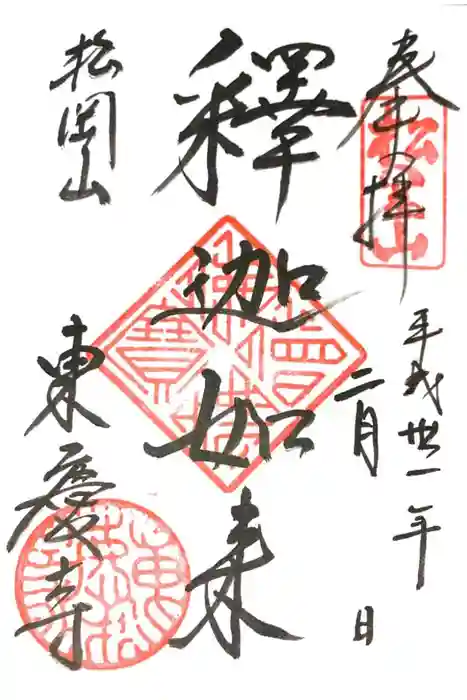 奉拝
松岡山
平成丗一年
二月 日
釋迦如来
松岡山
東慶寺